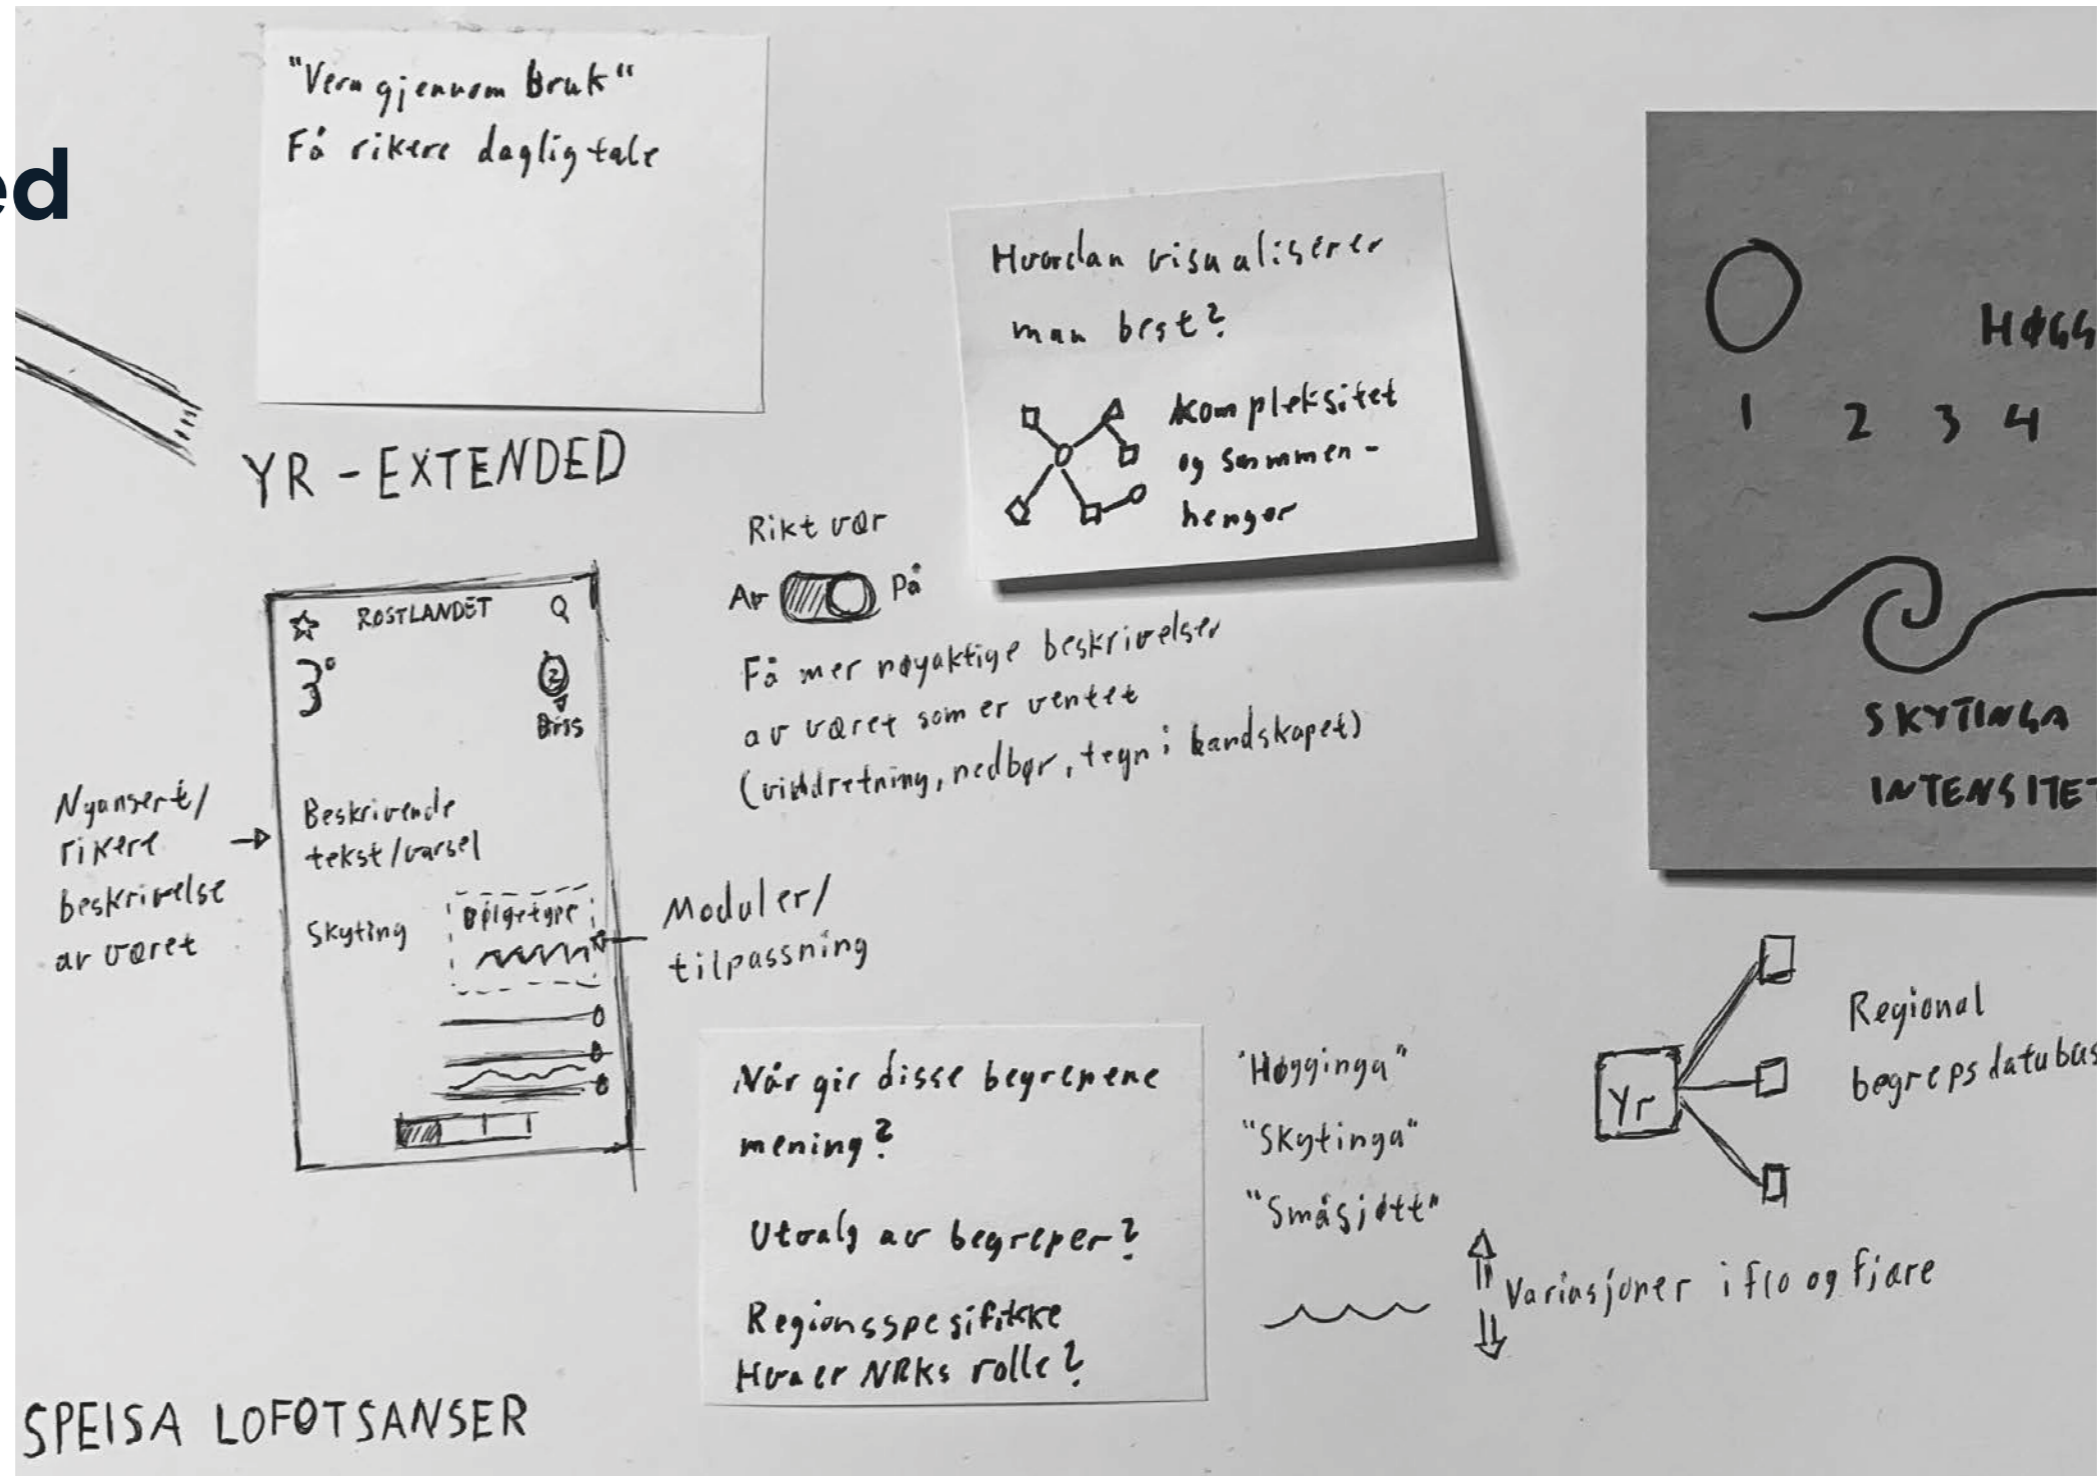 ed
"Vern gjennom Bruk"
Få rikere dagligtale
Hvordan visualiserer
man best?
Kompleksitet
og sammen-
henger
HØGG
1 2 3 4
SKYTINGA
INTENSITET
YR - EXTENDED
Rikt vær
Av På
Få mer nøyaktige beskrivelser
av været som er ventet
(vinddretning, nedbør, tegn i landskapet)
ROSTLANDET
3°
2
Bris
Beskrivende
tekst/varsel
Skyting
Bølgetype
Nyansert/
rikere
beskrivelse
av været
Moduler/
tilpassning
Når gir disse begrepene
mening?
Utvalg av begreper?
Regionsspesifikke
Hva er NRKs rolle?
"Høgginga"
"Skytinga"
"Småsjøtt"
Variasjoner i flo og fjære
Yr
Regional
begrepsdatabas
SPEISA LOFOTSANSER